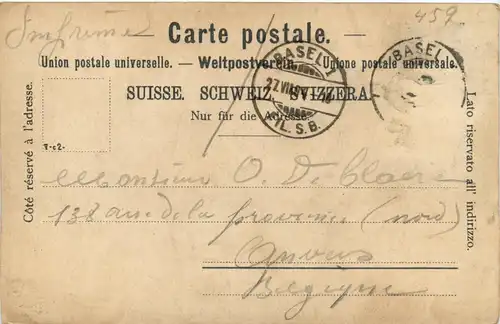 Imprimé
459
Carte postale.
Union postale universelle. — Weltpostverein. — Unione postale universale.
SUISSE. SCHWEIZ. SVIZZERA.
Nur für die Adresse.
BASEL 1
27 VII
BASEL
Côté réservé à l'adresse.
Lato riservato all' indirizzo.
Monsieur O. De
138 de la province (nord)
Anvers
Belgique